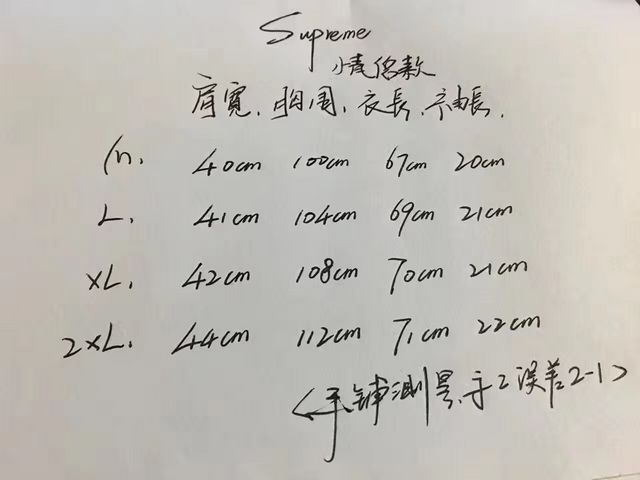 Supreme
情侣款
肩寬. 胸围. 衣長. 袖長.
m. 40cm 100cm 67cm 20cm
L. 41cm 104cm 69cm 21cm
XL. 42cm 108cm 70cm 21cm
2XL. 44cm 112cm 71cm 22cm
<手 测量. 误差2-1>